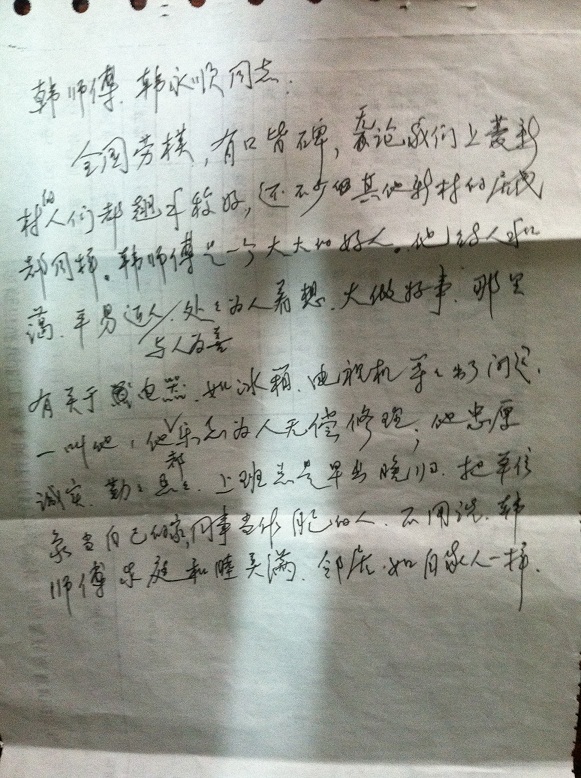 韩师傅、韩永顺同志:
全国劳模,有口皆碑,无论我们上菱新
村的人们都翘手称好,还不少的其他新村的居民
都同样。韩师傅是一个大大的好人。他待人和
蔼、平易近人,处处为人着想、大做好事、那里
与人为善
有关于电器、如冰箱、电视机等等出了问题、
一叫他,他都乐意为人无偿修理;他忠厚
诚实、勤勤恳恳、上班总是早出晚归、把单位
当自己的家,同事当作自己的人、不用说、韩
师傅家庭和睦美满、邻居如自家人一样、